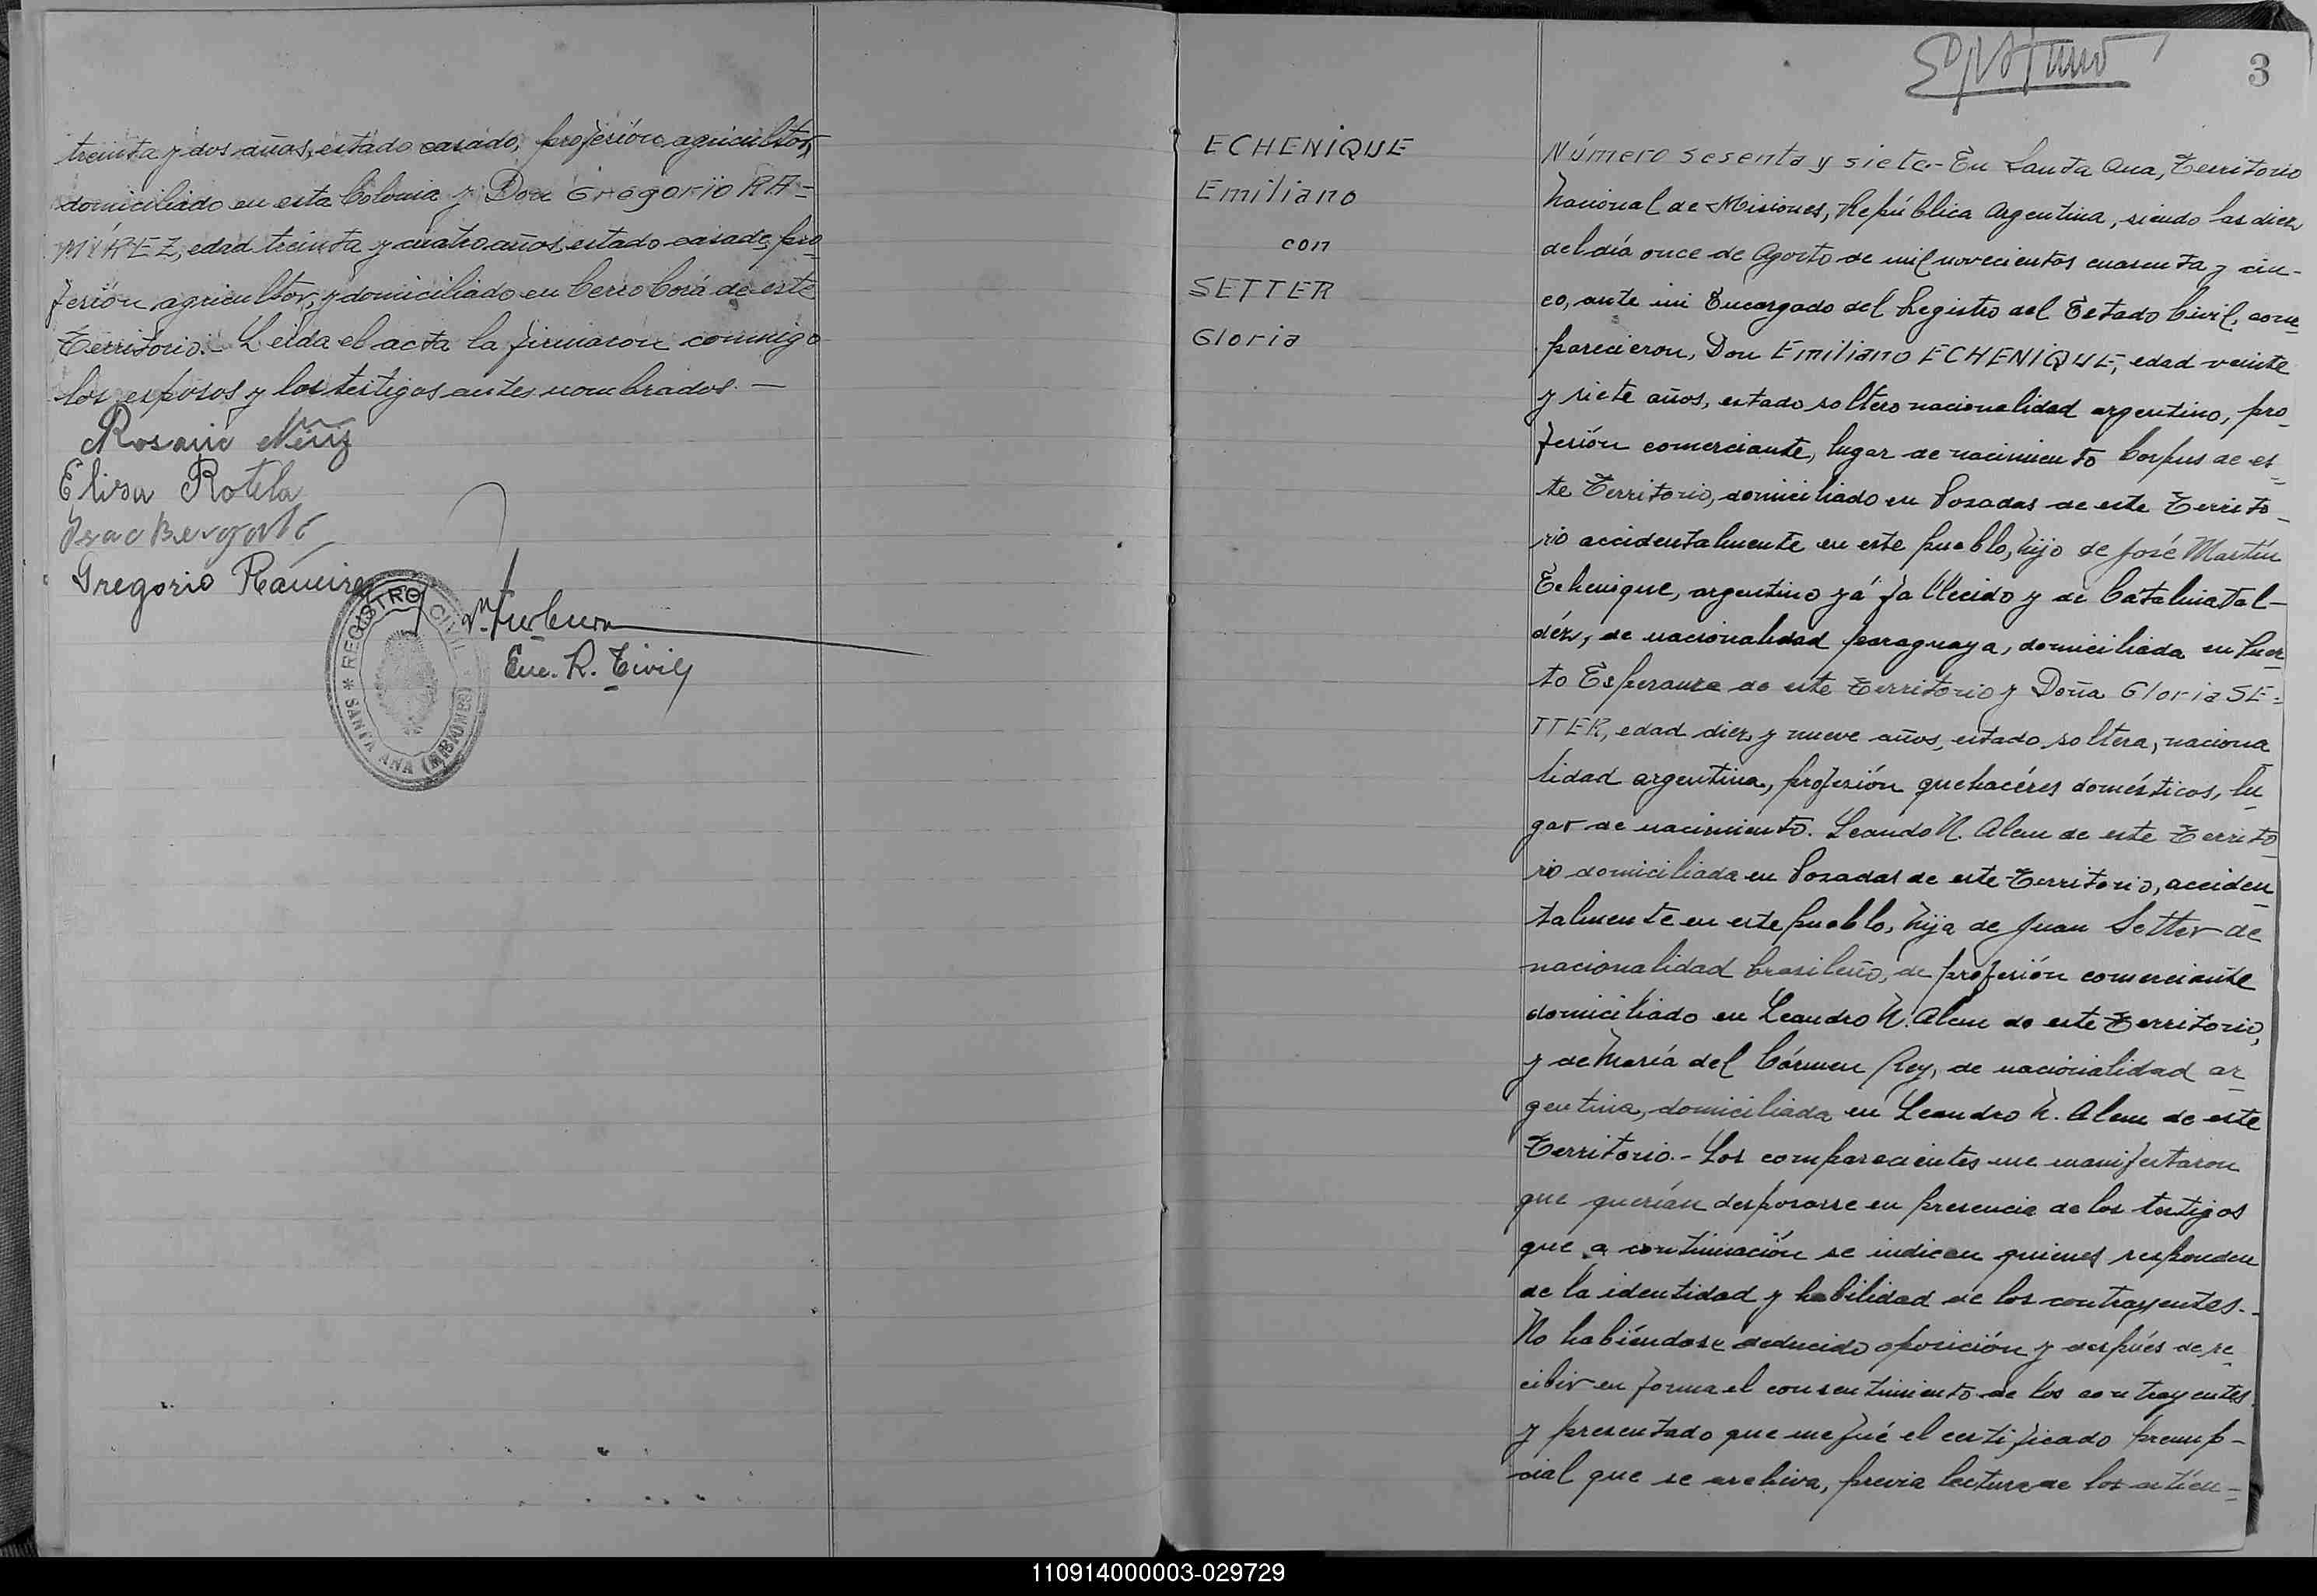 treinta y dos años, estado casado, profesión agricultor,
domiciliado en esta Colonia y Don Gregorio RA-
MÍREZ, edad treinta y cuatro años, estado casado, pro-
fesión agricultor, y domiciliado en Cerro Corá de este
Territorio.- Leída el acta la firmaron conmigo
los esposos y los testigos antes nombrados.-
Rosario
Elisa Rotela
Isac
Gregorio Ramirez
REGISTRO CIVIL
* SANTA ANA (MISIONES)
Enc. R. Civil
3
ECHENIQUE
Emiliano
con
SETTER
Gloria
Número sesenta y siete.- En Santa Ana, Territorio
Nacional de Misiones, República Argentina, siendo las diez
del día once de Agosto de mil novecientos cuarenta y cin-
co, ante mi Encargado del Registro del Estado Civil, com-
parecieron, Don Emiliano ECHENIQUE, edad veinte
y siete años, estado soltero nacionalidad argentino, pro-
fesión comerciante, lugar de nacimiento Corpus de es-
te Territorio, domiciliado en Posadas de este Territo-
rio accidentalmente en este pueblo, hijo de José Martín
Echenique, argentino yá fallecido y de Catalina Val-
déz, de nacionalidad paraguaya, domiciliada en Puer-
to Esperanza de este Territorio y Doña Gloria SE-
TTER, edad diez y nueve años, estado soltera, naciona
lidad argentina, profesión quehacéres domésticos, lu-
gar de nacimiento. Leando N. Alem de este Territo-
rio domiciliada en Posadas de este Territorio, acciden-
talmente en este pueblo, hija de Juan Setter de
nacionalidad brasileño, de profesión comerciante
domiciliado en Leandro N. Alem de este Territorio,
y de María del Cármen Rey, de nacionalidad ar-
gentina, domiciliada en Leandro N. Alem de este
Territorio.- Los comparecientes me manifestaron
que querían desposarse en presencia de los testigos
que a continuación se indican quienes responden
de la identidad y habilidad de los contrayentes.-
No habiéndose deducido oposición y después de re-
cibir en forma el consentimiento de los contrayentes
y presentado que me fué el certificado prenup-
cial que se archiva, previa lectura de los artícu-
110914000003-029729